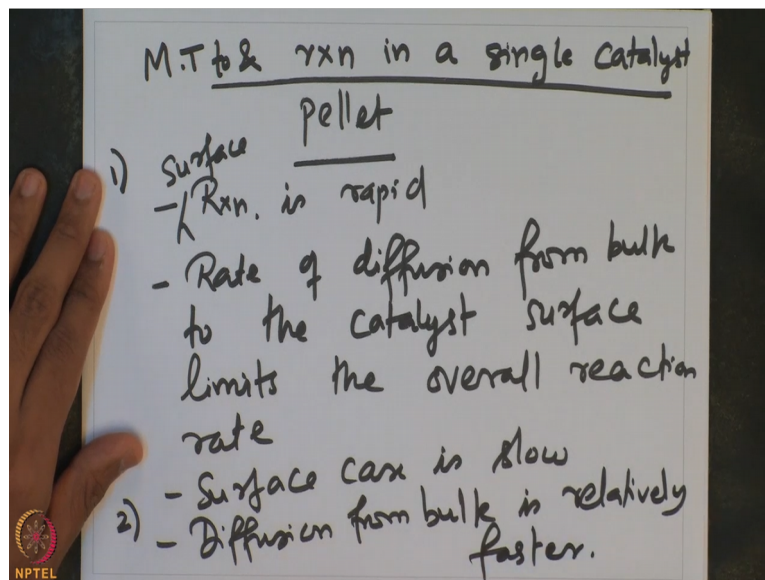 M.T to & rxn in a single catalyst
pellet
1) Surface
- Rxn. is rapid
- Rate of diffusion from bulk
to the catalyst surface
limits the overall reaction
rate
- Surface case is slow
2) - Diffusion from bulk is relatively
faster.
NPTEL